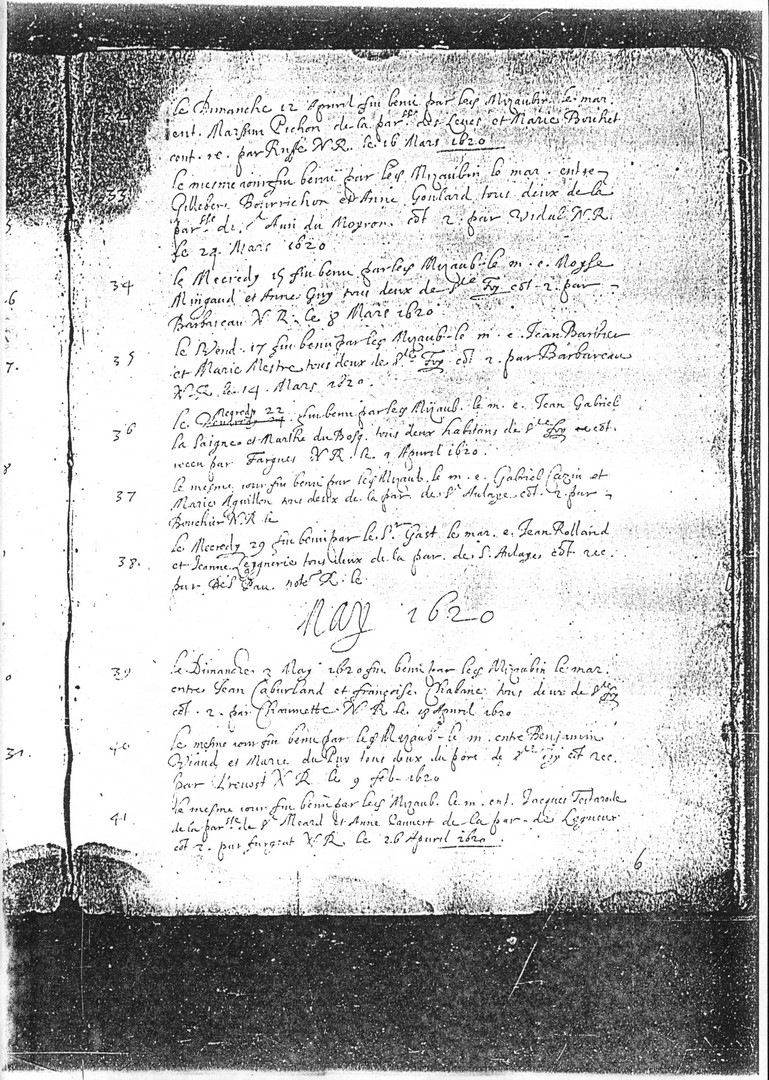 le Dimanche 12 Apvril fut beni par le Sr Mizaubin le mar.
ent. Marsim Pichon de la parsse des Leves et Marie Bouhet
cont. re. par Ruffe N. R. le 16 Mars 1620
33 le mesme iour fut beni par le Sr Mizaubin le mar. entre
Gillebert Bourrichon et Anne Goulard tous deux de la
parsse de St Avi du Moyron. cõt. 2. par Vidal N. R.
le 24 Mars 1620
34 le Mecredy 15 fut beni par le Sr Mizaub. le m. e. Moyse
Mingaud et Anne Guy tous deux de Ste Foy cõt. 2. par
Barbareau N. R. le 8 Mars 1620
35 le Vend. 17 fut beni par le Sr Mizaub. le m. e. Jean Barbier
et Marie Mestre tous deux de Ste Foy cõt. 2. par Barbareau
N. R. le 14. Mars 1620.
36 le Mecredy 22 fut beni par le Sr Mizaub. le m. e. Jean Gabriel
la Saigne et Marthe du Bosq. tous deux habitans de Ste Foy cõt.
receu par Fargues N. R. le 1 Apvril 1620.
37 le mesme iour fut beni par le Sr Mizaub. le m. e. Gabriel Cazin et
Marie Aquillon tous deux de la par. de St Aulaye cõt. 2. par
Bouchier N. R. le
38. le Mecredy 29 fut beni par le Sr Gast le mar. e. Jean Rolland
et Jeanne Leygnerie tous deux de la par. de S. Aulaye cõt. rec.
par Des Pau. note R. le
May 1620
39 le Dimanche 3 May 1620 fut beni par le Sr Mizaubin le mar.
entre Jean Caburland et françoise Chabane tous deux de Ste Foy
cõt. 2. par Chaumette N. R. le 18 Apvril 1620
40 le mesme iour fut beni par le Sr Mizaub. le m. entre Benjamin
Viaud et Marie du Puy tous deux du port de Ste Foy cõt rec.
par Prevost N. R. le 9 feb. 1620
41 le mesme iour fut beni par le Sr Mizaub. le m. ent. Jacques Testarode
de la parsse de St Meard et Anne Gauvert de la par. de Ligueux
cõt 2. par furgat N. R. le 26 Apvril 1620
6
6
7.
31.